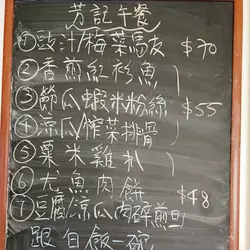 芳記午餐
① 豉汁/梅菜馬友 $70
② 香煎紅衫魚
③ 節瓜蝦米粉絲 $55
④ 涼瓜/榨菜排骨
⑤ 粟米雞扒
⑥ 尤魚肉餅 $48
⑦ 豆腐/涼瓜肉碎煎旦
跟白飯一碗